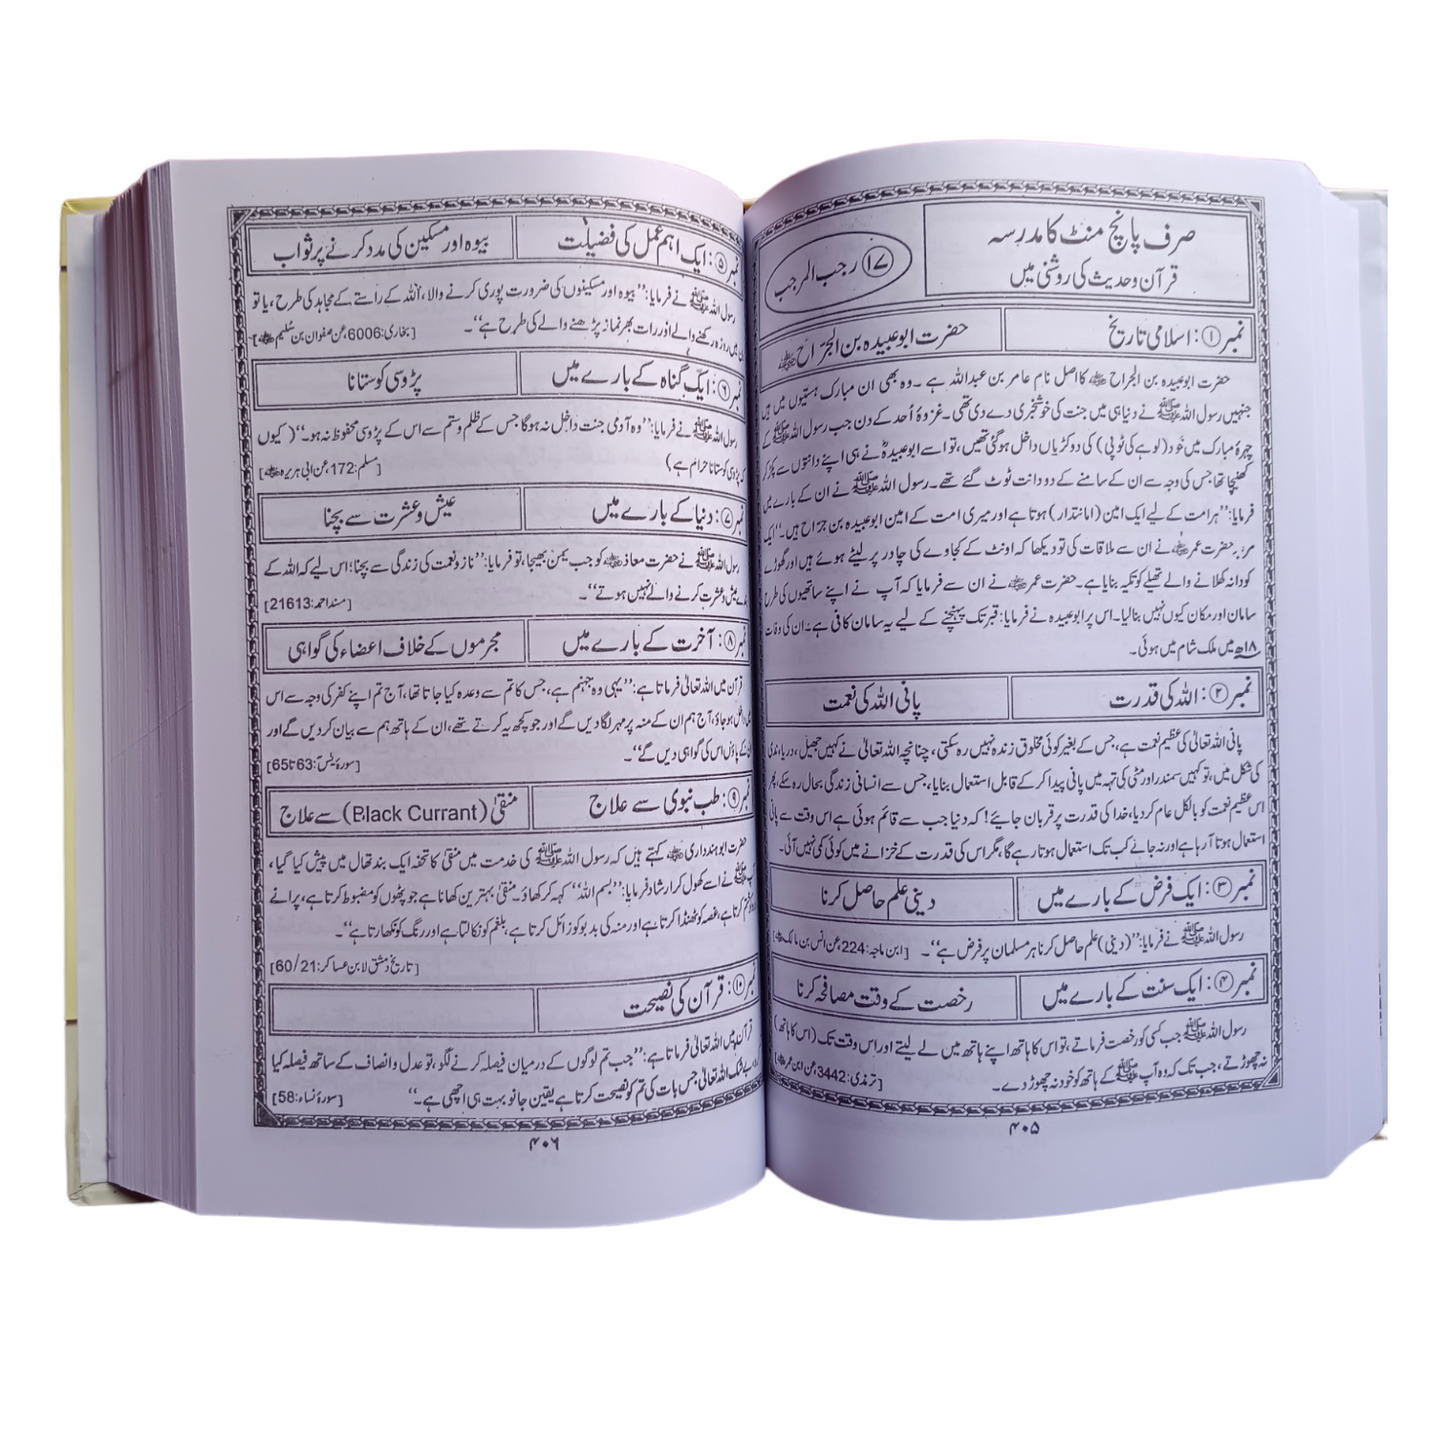 صرف پانچ منٹ کا مدرسہ
قرآن وحدیث کی روشنی میں
۱۷ رجب المرجب
نمبر ۱: اسلامی تاریخ
حضرت ابوعبیدہ بن الجرّاح ؓ
حضرت ابوعبیدہ بن الجراح ؓ کا اصل نام عامر بن عبداللہ ہے۔ وہ بھی ان مبارک ہستیوں میں ہیں
جنہیں رسول اللہ ﷺ نے دنیا ہی میں جنت کی خوشخبری دے دی تھی۔ غزوۂ اُحد کے دن جب رسول اللہ ﷺ کے
چہرۂ مبارک میں خَود (لوہے کی ٹوپی) کی دو کڑیاں داخل ہوگئی تھیں، تو اسے ابوعبیدہؓ نے ہی اپنے دانتوں سے پکڑ کر
کھینچا تھا جس کی وجہ سے ان کے سامنے کے دو دانت ٹوٹ گئے تھے۔ رسول اللہ ﷺ نے ان کے بارے میں
فرمایا: ’’ہر امت کے لیے ایک امین (امانتدار) ہوتا ہے اور میری امت کے امین ابوعبیدہ بن جرّاح ہیں۔‘‘ ایک
مرتبہ حضرت عمر ؓ نے ان سے ملاقات کی تو دیکھا کہ اونٹ کے کجاوے کی چادر پر لیٹے ہوئے ہیں اور گھوڑے
کو دانہ کھلانے والے تھیلے کو تکیہ بنایا ہے۔ حضرت عمر ؓ نے ان سے فرمایا کہ آپ نے اپنے ساتھیوں کی طرح
سامان اور مکان کیوں نہیں بنالیا۔ اس پر ابوعبیدہ نے فرمایا: قبر تک پہنچنے کے لیے یہ سامان کافی ہے۔ ان کی وفات
۱۸ھ میں ملک شام میں ہوئی۔
نمبر ۲: اللہ کی قدرت
پانی اللہ کی نعمت
پانی اللہ تعالیٰ کی عظیم نعمت ہے، جس کے بغیر کوئی مخلوق زندہ نہیں رہ سکتی، چنانچہ اللہ تعالیٰ نے کہیں جھیل، دریا، ندی
کی شکل میں، تو کہیں سمندر اور مٹی کی تہہ میں پانی پیدا کر کے قابل استعمال بنایا، جس سے انسانی زندگی بحال رہ سکے، پھر
اس عظیم نعمت کو بالکل عام کر دیا، خدا کی قدرت پر قربان جایئے! کہ دنیا جب سے قائم ہوئی ہے اس وقت سے پانی
استعمال ہوتا آرہا ہے اور نہ جانے کب تک استعمال ہوتا رہے گا، مگر اس کی قدرت کے خزانے میں کوئی کمی نہیں آئی۔
نمبر ۳: ایک فرض کے بارے میں
دینی علم حاصل کرنا
رسول اللہ ﷺ نے فرمایا: ’’(دینی) علم حاصل کرنا ہر مسلمان پر فرض ہے‘‘۔ [ابن ماجہ: 224، عن انس بن مالکؓ]
نمبر ۴: ایک سنت کے بارے میں
رخصت کے وقت مصافحہ کرنا
رسول اللہ ﷺ جب کسی کو رخصت فرماتے، تو اس کا ہاتھ اپنے ہاتھ میں لے لیتے اور اس وقت تک (اس کا ہاتھ)
نہ چھوڑتے، جب تک کہ وہ آپ ﷺ کے ہاتھ کو خود نہ چھوڑ دے۔ [ترمذی: 3442، عن ابن عمرؓ]
۴۰۵
نمبر ۵: ایک اہم عمل کی فضیلت
بیوہ اور مسکین کی مدد کرنے پر ثواب
رسول اللہ ﷺ نے فرمایا: ’’بیوہ اور مسکینوں کی ضرورت پوری کرنے والا، اللہ کے راستے کے مجاہد کی طرح، یا تو
میں روزہ رکھنے والے اور رات بھر نماز پڑھنے والے کی طرح ہے‘‘۔ [بخاری: 6006، عن صفوان بن سُلیم ؓ]
نمبر ۶: ایک گناہ کے بارے میں
پڑوسی کو ستانا
رسول اللہ ﷺ نے فرمایا: ’’وہ آدمی جنت داخل نہ ہوگا جس کے ظلم و ستم سے اس کے پڑوسی محفوظ نہ ہو۔‘‘ (کیوں
کہ پڑوسی کو ستانا حرام ہے) [مسلم: 172، عن ابی ہریرہ ؓ]
نمبر ۷: دنیا کے بارے میں
عیش و عشرت سے بچنا
رسول اللہ ﷺ نے حضرت معاذ ؓ کو جب یمن بھیجا، تو فرمایا: ’’ناز و نعمت کی زندگی سے بچنا؛ اس لیے کہ اللہ کے
بندے عیش و عشرت کرنے والے نہیں ہوتے‘‘۔ [مسند احمد: 21613]
نمبر ۸: آخرت کے بارے میں
مجرموں کے خلاف اعضاء کی گواہی
قرآن میں اللہ تعالیٰ فرماتا ہے: ’’یہی وہ جہنم ہے، جس کا تم سے وعدہ کیا جاتا تھا، آج تم اپنے کفر کی وجہ سے اس
میں داخل ہو جاؤ، آج ہم ان کے منہ پر مہر لگا دیں گے اور جو کچھ یہ کرتے تھے، ان کے ہاتھ ہم سے بیان کر دیں گے اور
ان کے پاؤں اس کی گواہی دیں گے‘‘۔ [سورۂ یٰسٓ: 63 تا 65]
نمبر ۹: طب نبوی سے علاج
منقیٰ (Black Currant) سے علاج
حضرت ابوہندداری ؓ کہتے ہیں کہ رسول اللہ ﷺ کی خدمت میں منقیٰ کا تحفہ ایک بند تھال میں پیش کیا گیا،
آپ ﷺ نے اسے کھول کر ارشاد فرمایا: ’’بسم اللہ‘‘ کہہ کر کھاؤ۔ منقیٰ بہترین کھانا ہے جو پٹھوں کو مضبوط کرتا ہے، پرانے
کرتا ہے، غصہ کو ٹھنڈا کرتا ہے اور منہ کی بدبو کو زائل کرتا ہے، بلغم کو نکالتا ہے اور رنگ کو نکھارتا ہے‘‘۔
[تاریخ دمشق لابن عساکر: 60/21]
نمبر ۱۰: قرآن کی نصیحت
قرآن میں اللہ تعالیٰ فرماتا ہے: ’’جب تم لوگوں کے درمیان فیصلہ کرنے لگو، تو عدل و انصاف کے ساتھ فیصلہ کیا
کرو، بے شک اللہ تعالیٰ جس بات کی تم کو نصیحت کرتا ہے یقین جانو بہت ہی اچھی ہے۔‘‘ [سورۂ نساء: 58]
۴۰۶